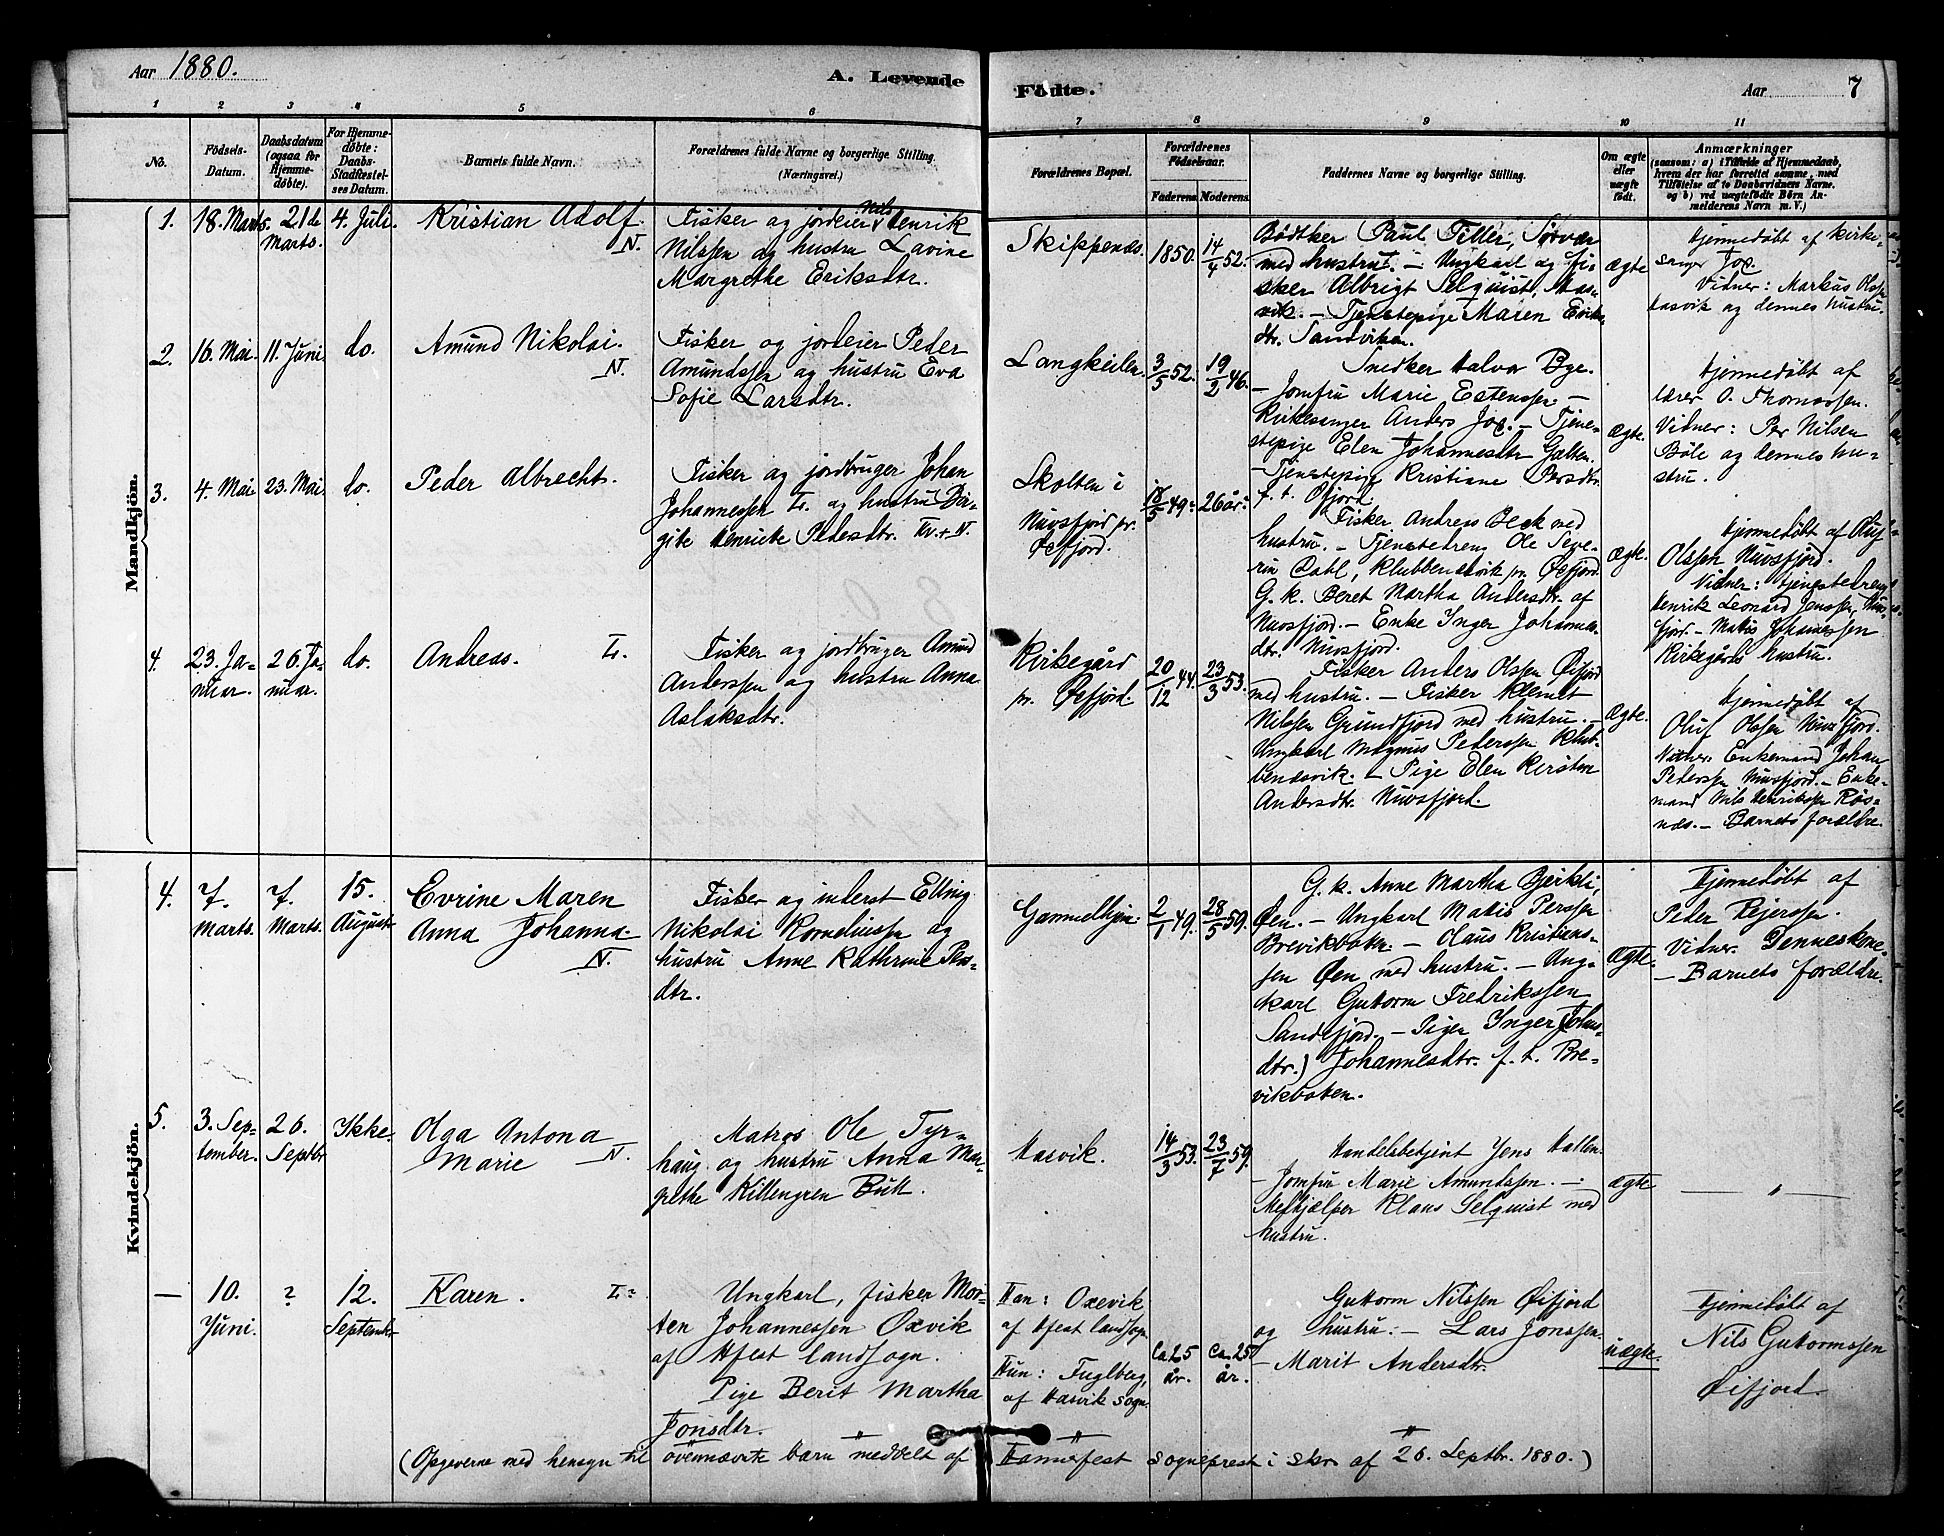 Aar 1880.
A. Levende
Fødte.
Aar 7
1 2 3 4 5 6 7 8 9 10 11
No.
Fødsels-
Datum.
Daabsdatum
(ogsaa for
Hjemme-
døbte).
For Hjemme-
døbte:
Daabs-
Stadfæstel-
ses Datum.
Barnets fulde Navn.
Forældrenes fulde Navne og borgerlige Stilling.
(Næringsvei.)
Forældrenes Bopæl.
Forældrenes
Fødselsaar.
Faderens. Moderens.
Faddernes Navne og borgerlige Stilling.
Om ægte
eller
uægte
født.
Anmærkninger
(saasom: a) i Tilfælde af Hjemmedaab,
hvem der har forrettet samme, med
Tilføielse af to Daabsvidners Navne,
og b) ved uægtefødte Børn An-
melderens Navn m. V.)
Mandkjön.
1.
18. Marts.
21de
Marts.
4. Juli
Kristian Adolf.
N.
Fisker og jordeier Nils Henrik
Nilssen og hustru Lavine
Margrethe Eriksdtr.
Skippernes.
1850.
14/4 52.
Bødtker Paul Tiller, Sørvær
med hustru. – Ungkarl og fi-
sker Albrigt Selquist, Has-
vik. – Tjenstepige Maren Eriks-
dtr. Sandviken.
ægte
Hjemmedøbt af kirke-
sanger Jox.
Vidner: Markus Olsen
Hasvik og dennes hustru.
2.
16. Mai.
11. Juni
do.
Amund Nikolai.
N.
Fisker og jordeier Peder
Amundssen og hustru Eva
Sofie Larsdtr.
Langkeilen
3/5 52.
19/2 46.
Snedker Halvor Bye.
– Jomfru Marie Estenssen. –
Kirkesanger Anders Jox. – Tjene-
stepige Elen Johannesdtr Galten.
– Tjenstepige Kristiane Persdtr.
f. t. Øfjord.
ægte.
Hjemmedøbt af
lærer O. Thomassen.
Vidner: Per Nilsen
Böle og dennes hu-
stru.
3.
4. Mai
23. Mai.
do.
Peder Albrecht.
Fisker og jordbruger Johan
Johannessen L. og hustru Bir-
gite Henriette Pedersdtr. Kv. + N.
Skolten i
Nuvsfjord pr.
Øxfjord.
18/5 49.
26 år.
Fisker Andreas Beck med
hustru. – Tjenstedreng Ole Seve-
rin Dahl, Klubbenesvik pr. Øxfjord.
G. k. Beret Martha Andersdtr. af
Nuvsfjord. – Enke Inger Johannes-
dtr. Nuvsfjord.
ægte.
Hjemmedøbt af Oluf
Olssen Nuvsfjord.
Vidner: tjenestedreng
Henrik Leonard Jenssen, Nuvs-
fjord. – Matis Johannessen
Kirkegårds hustru.
4.
23. Ja-
nuar.
26. Ja-
nuar.
do.
Andreas. L.
Fisker og jordbruger Amund
Anderssen og hustru Anna
Aslaksdtr.
Kirkegård
pr. Øxfjord.
20/12 44.
23/3 53.
Fisker Anders Olssen Øxfjord
med hustru. – Fisker Klemet
Nilssen Grundfjord med hustru. –
Ungkarl Magnus Pederssen Klub-
benesvik. – Pige Elen Kirsten
Andersdtr. Nuvsfjord.
ægte.
Hjemmedøbt af
Oluf Olssen Nuvsfjord.
Vidner. Enkemand Johan
Pederssen Nuvsfjord. – Enke-
mand Nils Henrikssen Rös-
næs. – Barnets forældre.
Kvindekjön.
4.
7.
Marts.
7.
Marts.
15.
August
Evrine Maren
Anna Johanna.
N.
Fisker og inderst Elling
Nikolai Korneliussen og
hustru Anne Kathrine Pers-
dtr.
Gammelhjem.
2/1 49.
28/5 59.
G. k. Anne Martha Bjerkli,
Øen. – Ungkarl Matis Perssen
Brevikbotn. – Olaus Kristians-
sen Øen med hustru. – Ung-
karl Guttorm Fredrikssen
Sandefjord. – Pigen Inger (Johns-
dtr.) Johannesdtr. f. t. Bre-
vikboten.
ægte.
Hjemmedøbt af
Peder Pejerssen.
Vidner. Dennes kone
– Barnets forældre.
5.
3. Sep-
tember.
26.
Septbr
Ikke.
Olga Antona
Marie N.
Matros Ole Tyr-
haug og hustru Anna Mar-
grethe Killengren Bull.
Hasvik.
14/3 53.
23/7 59.
Handelsbetjent Jens Hallen.
– Jomfru Marie Amundssen. –
Medhjælper Klaus Selquist med
hustru.
ægte
– " –
—
10.
Juni.
?
12.
Septembr
Karen. L.
Ungkarl, fisker Mor-
ten Johannessen Oxvik
af Hfest landsogn.
Pige Berit Martha
Jonsdtr.
Han: Oxevik
af Hfest landsogn
Hun: Fuglberg,
af Hasvik sogn.
Ca 25
år.
Ca. 25
år.
Guttorm Nilssen Øifjord
og hustru. – Lars Jonssen.
– Marit Andersdtr.
uægte.
Hjemmedøbt af
Nils Guttormssen
Øifjord.
(Opgaverne med hensyn til ovennævnte barn meddelt af Hammerfest sogneprest i skr. af 26. Septbr. 1880.)